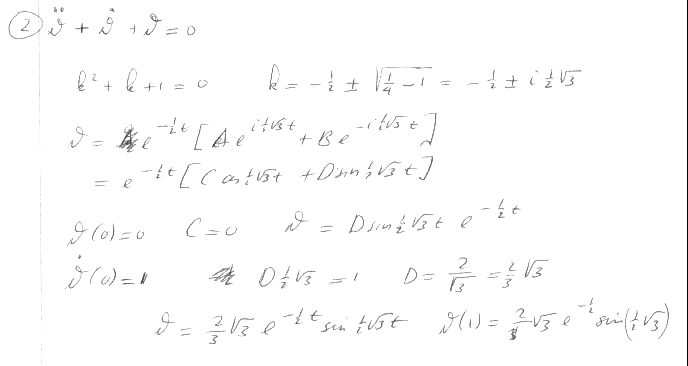 ② ϑ̈ + ϑ̇ + ϑ = 0
k² + k + 1 = 0 k = -½ ± √(¼ - 1) = -½ ± i ½√3
ϑ = e^(-½t) [A e^(i½√3t) + B e^(-i½√3t)]
= e^(-½t) [C cos ½√3t + D sin ½√3t]
ϑ(0) = 0 C = 0 ϑ = D sin ½√3t e^(-½t)
ϑ̇(0) = 1 D ½√3 = 1 D = 2/√3 = ⅔√3
ϑ = ⅔√3 e^(-½t) sin ½√3t ϑ(1) = ⅔√3 e^(-½) sin(½√3)